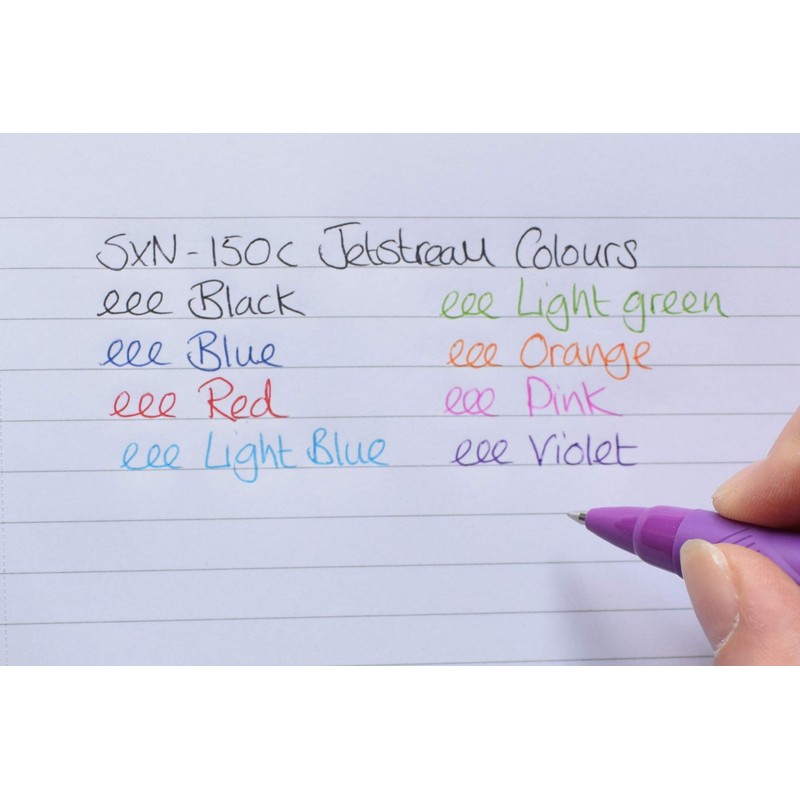 SXN-150C Jetstream Colours
eee Black
eee Blue
eee Red
eee Light Blue
eee Light green
eee Orange
eee Pink
eee Violet